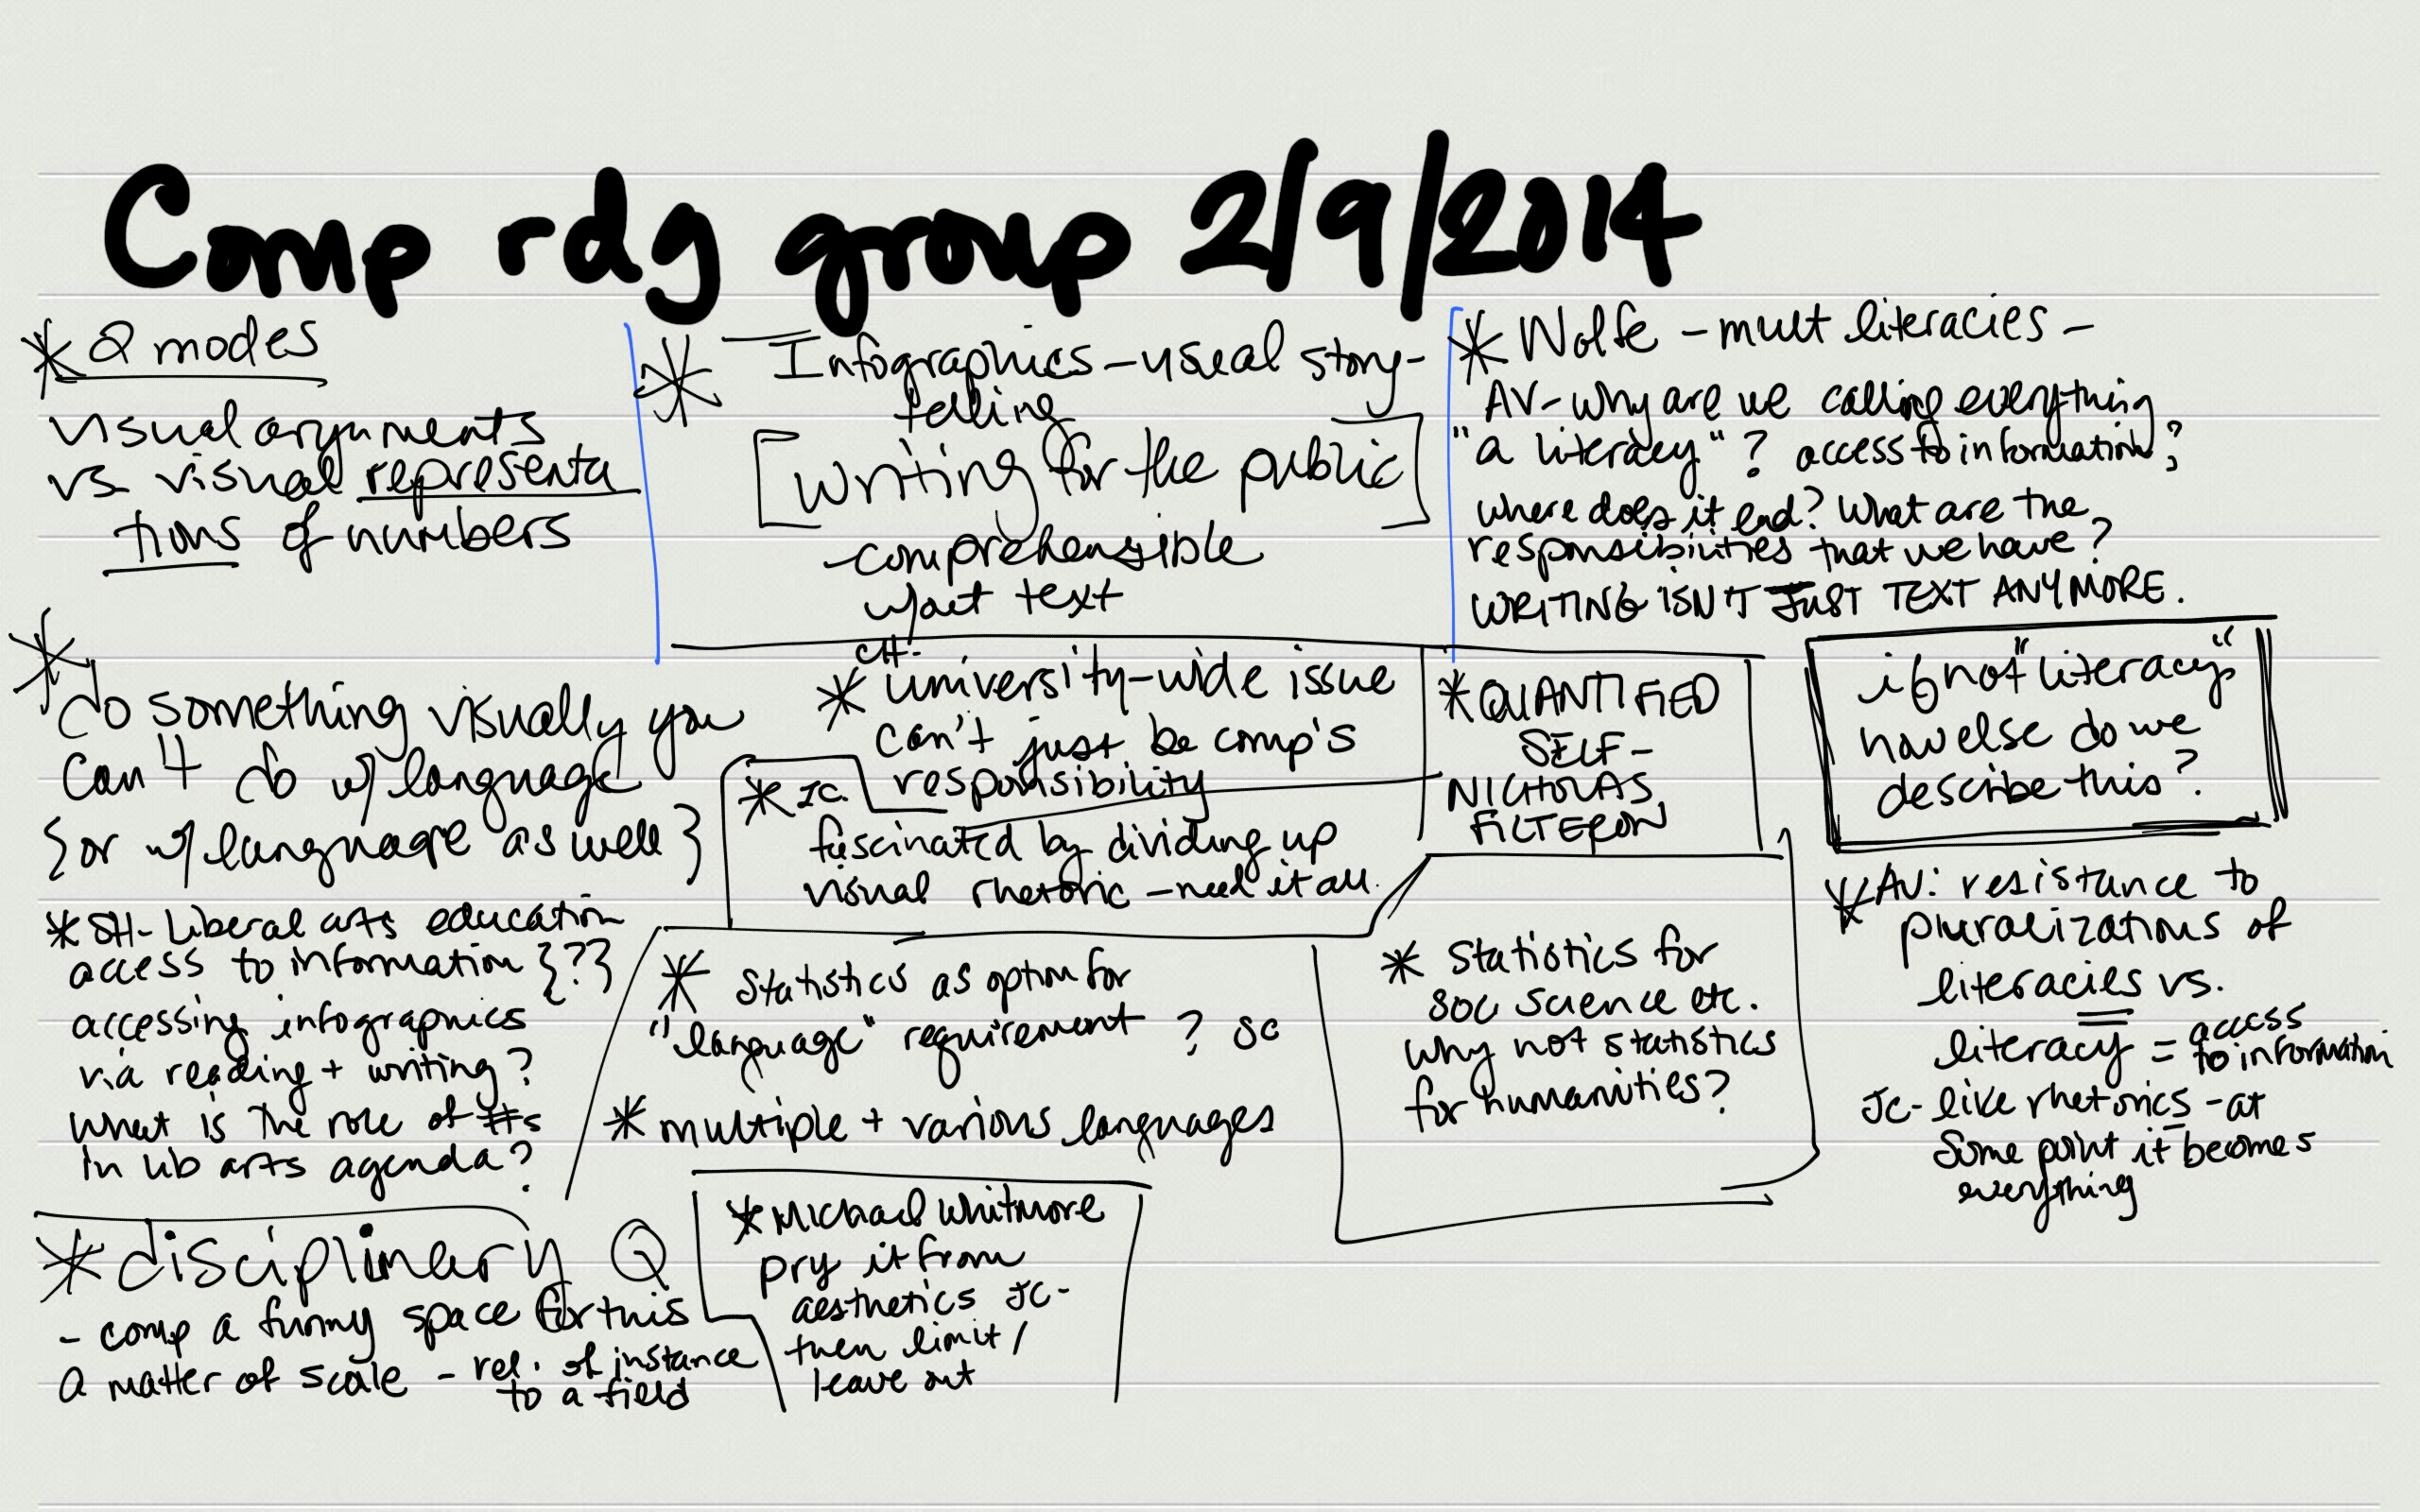 Comp rdg group 2/9/2014
* 2 modes
visual arguments
vs visual representa
tions of numbers
* Infographics - visual story-
telling
[writing for the public]
- comprehensible
w/out text
* Wolfe - mult literacies -
AV - why are we calling everything
"a literacy"? access to information?
where does it end? What are the
responsibilities that we have?
WRITING ISN'T JUST TEXT ANYMORE.
*
do something visually you
can't do w/ language
{or w/ language as well}
CH-
* university-wide issue
can't just be comp's
responsibility
* QUANTIFIED
SELF-
NICHOLAS
FILTERON
if not "literacy"
how else do we
describe this?
* JC.
fascinated by dividing up
visual rhetoric - need it all.
* SH- Liberal arts education
access to information {?}
accessing infographics
via reading + writing?
What is the role of #s
in lib arts agenda?
* Statistics as option for
"language" requirement? SC
* multiple + various languages
* Statistics for
soc science etc.
why not statistics
for humanities?
* AV: resistance to
pluralizations of
literacies vs.
literacy = access
to information
JC- like rhetorics - at
some point it becomes
everything
* disciplinary Q
- comp a funny space for this
a matter of scale - rel. of instance
to a field
* Michael Whitmore
pry it from
aesthetics JC-
then limit/
leave out